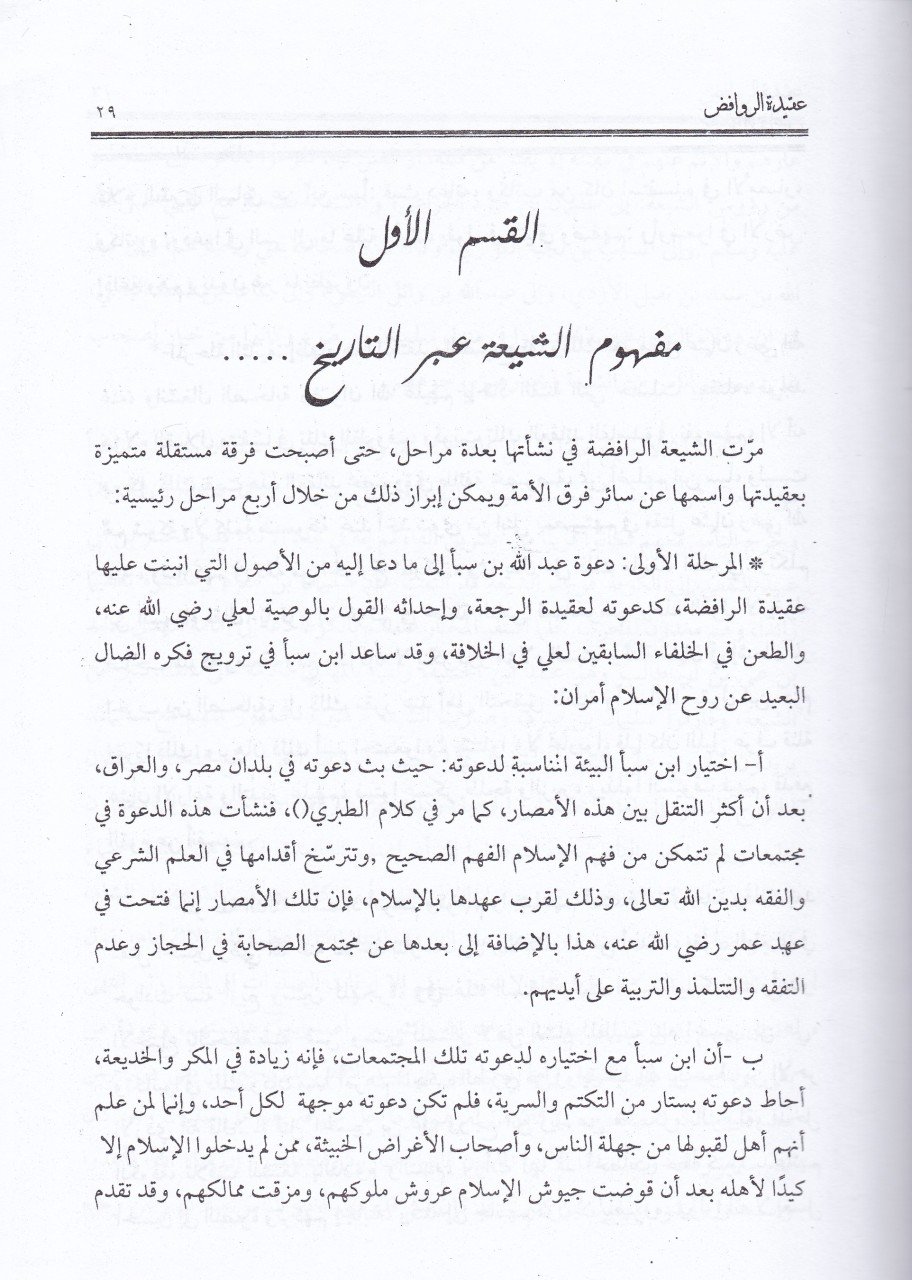 عقيدة الروافض
٢٩
القسم الأول
مفهوم الشيعة عبر التاريخ .....
مرّت الشيعة الرافضة في نشأتها بعدة مراحل، حتى أصبحت فرقة مستقلة متميزة
بعقيدتها واسمها عن سائر فرق الأمة ويمكن إبراز ذلك من خلال أربع مراحل رئيسية:
* المرحلة الأولى: دعوة عبد الله بن سبأ إلى ما دعا إليه من الأصول التي انبنت عليها
عقيدة الرافضة، كدعوته لعقيدة الرجعة، وإحداثه القول بالوصية لعلي رضي الله عنه،
والطعن في الخلفاء السابقين لعلي في الخلافة، وقد ساعد ابن سبأ في ترويج فكره الضال
البعيد عن روح الإسلام أمران:
أ- اختيار ابن سبأ البيئة المناسبة لدعوته: حيث بث دعوته في بلدان مصر، والعراق،
بعد أن أكثر التنقل بين هذه الأمصار، كما مر في كلام الطبري()، فنشأت هذه الدعوة في
مجتمعات لم تتمكن من فهم الإسلام الفهم الصحيح ,وتترسّخ أقدامها في العلم الشرعي
والفقه بدين الله تعالى، وذلك لقرب عهدها بالإسلام، فإن تلك الأمصار إنما فتحت في
عهد عمر رضي الله عنه، هذا بالإضافة إلى بعدها عن مجتمع الصحابة في الحجاز وعدم
التفقه والتتلمذ والتربية على أيديهم.
ب -أن ابن سبأ مع اختياره لدعوته تلك المجتمعات، فإنه زيادة في المكر والخديعة،
أحاط دعوته بستار من التكتم والسرية، فلم تكن دعوته موجهة لكل أحد، وإنما لمن علم
أنهم أهل لقبولها من جهلة الناس، وأصحاب الأغراض الخبيثة، ممن لم يدخلوا الإسلام إلا
كيدًا لأهله بعد أن قوضت جيوش الإسلام عروش ملوكهم، ومزقت ممالكهم، وقد تقدم